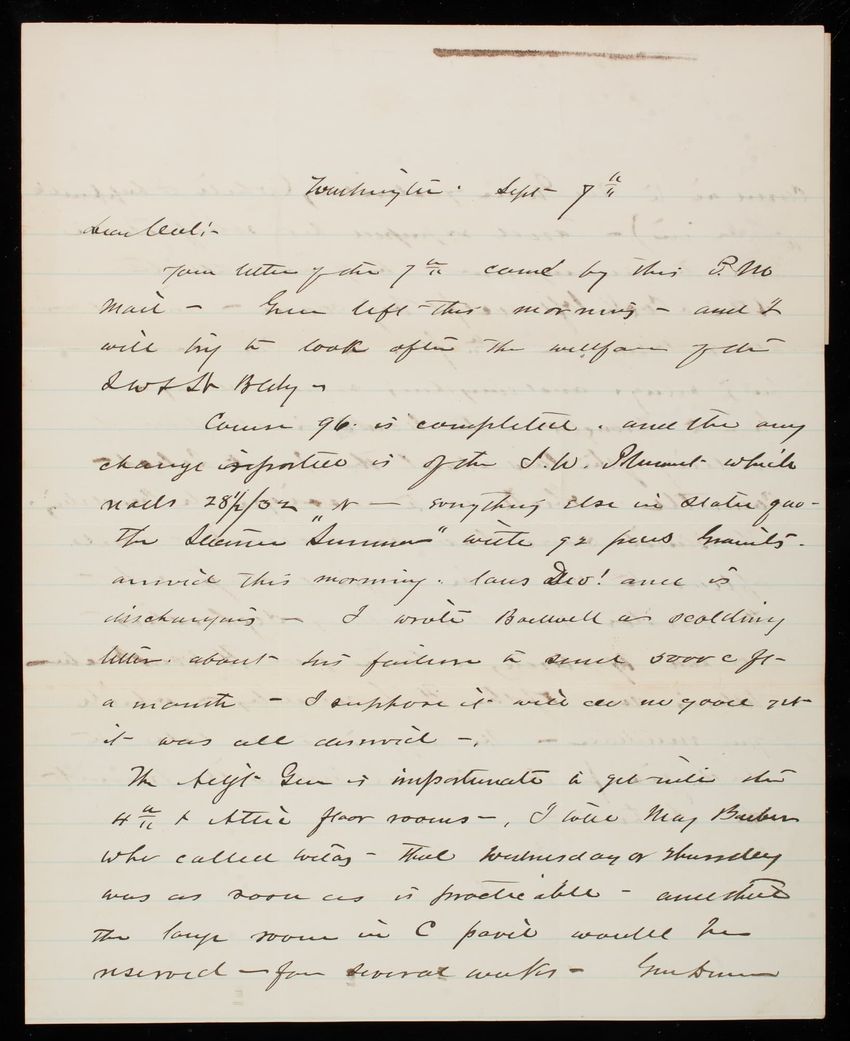 Washington. Sept 7th
Dear Col:-
Your letter of the 7th came by this P.M
mail - Green left this morning - and I
will try to look after the welfare of the
S W & N Bldg -
Course 96 is completed. and the only
change reported is of the S.W. which
reads 28 1/2/32 - everything else in statu quo -
The Steamer "Sumner" with 92 pces Granite -
arrived this morning. laus Deo! and is
discharging - I wrote Bodwell a scolding
letter about his failure to send 5000 c ft
a month - I suppose it will do no good yet
it was all deserved -.
The Adjt Gen is importunate to get into the
4th & Attic floor rooms -, I told Maj Barber
who called today - that Wednesday or Thursday
was as soon as is practicable - and that
the large room in C pavil would be
reserved - for several weeks - Gen Drum